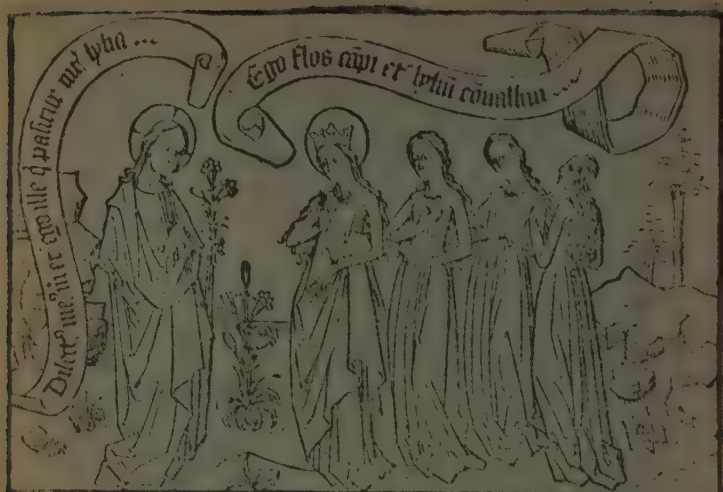 Dilectꝰ meꝰ m̄ et ego ille q̄ pascitur int᷑ lylia ...
Ego flos cāpi et lyliū cōualliū ...